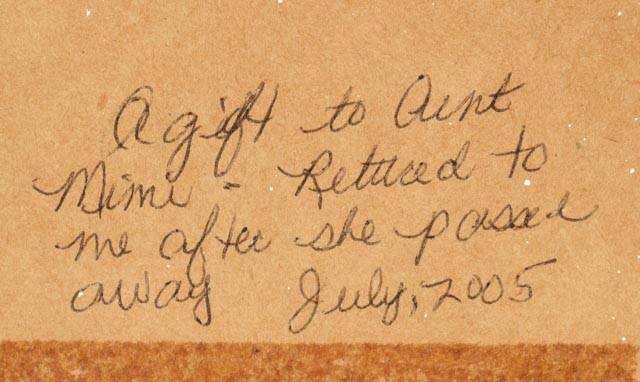 A gift to Aunt
Mimi - Retured to
me after she passed
away July, 2005